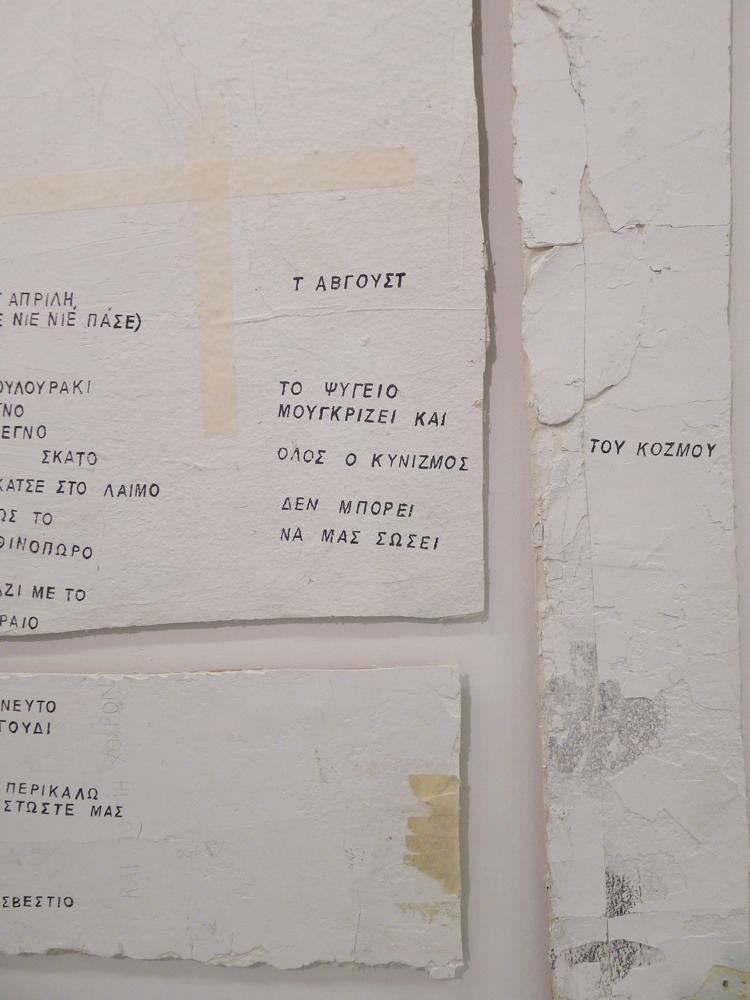 Τ ΑΒΓΟΥΣΤ
Τ ΑΠΡΙΛΗ,
Ε ΝΙΕ ΝΙΕ ΠΑΣΕ)
ΟΥΛΟΥΡΑΚΙ
ΓΝΟ
ΕΓΝΟ
ΣΚΑΤΟ
ΚΑΤΣΕ ΣΤΟ ΛΑΙΜΟ
ΩΣ ΤΟ
ΘΙΝΟΠΩΡΟ
ΑΖΙ ΜΕ ΤΟ
ΡΑΙΟ
ΤΟ ΨΥΓΕΙΟ
ΜΟΥΓΚΡΙΖΕΙ ΚΑΙ
ΟΛΟΣ Ο ΚΥΝΙΖΜΟΣ
ΔΕΝ ΜΠΟΡΕΙ
ΝΑ ΜΑΣ ΣΩΣΕΙ
ΤΟΥ ΚΟΖΜΟΥ
ΝΕΥΤΟ
ΓΟΥΔΙ
ΠΕΡΙΚΑΛΩ
ΣΤΩΣΤΕ ΜΑΣ
ΣΒΕΣΤΙΟ
ΚΑΙ